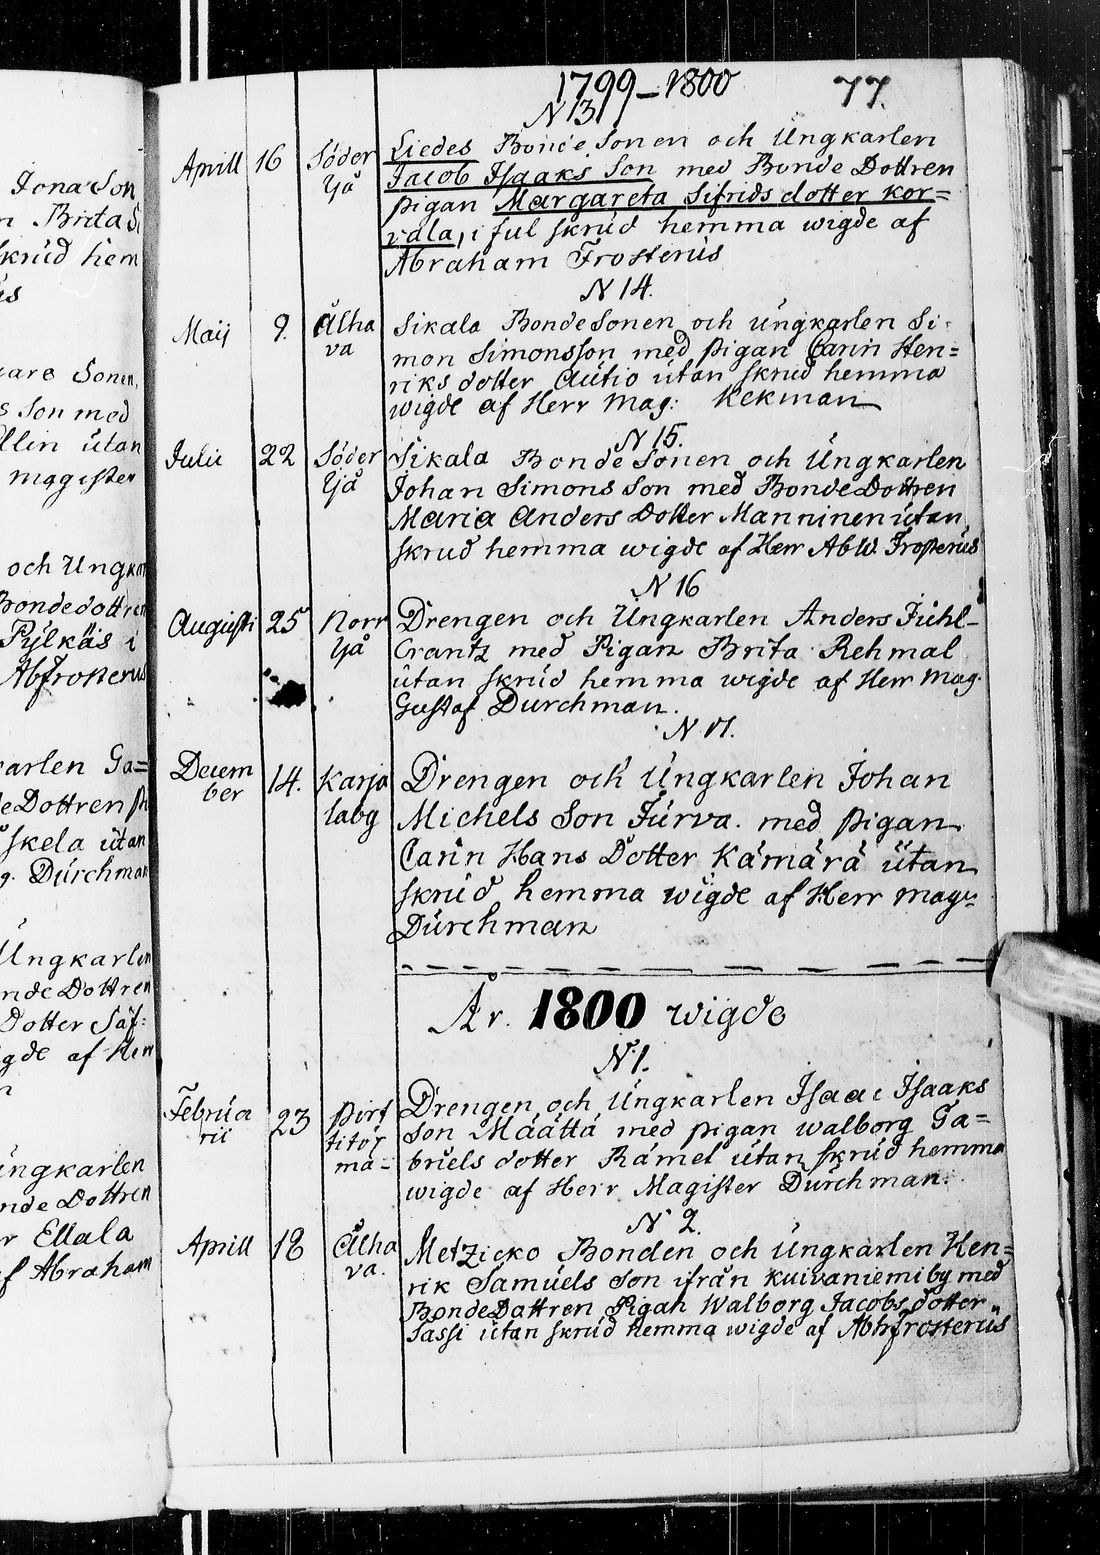 1799–1800 77.
N 13
Aprill 16 Söder Liedes Bonde Sonen och Ungkarlen
Ijå Jacob Isaaks Son med Bonde Dottren
pigan Margareta Sifrids dotter Kor=
vala, i ful skrud hemma wigde af
Abraham Frosterus
N 14.
Maij 9. Ålha Sikala Bonde Sonen och ungkarlen Si=
va mon Simonsson med pigan Carin Hen=
riks dotter Autio utan skrud hemma
wigde af Herr Mag: Kekman
N 15.
Julii 22 Söder Sikala Bonde Sonen och Ungkarlen
Ijå Johan Simons Son med Bonde Dottren
Maria Anders Dotter Manninen utan
skrud hemma wigde af Herr AbW. Frosterus
N 16
Augusti 25 Norr Drengen och Ungkarlen Anders Juhl-
Ijå Crantz med Pigan Brita Rehmal
utan skrud hemma wigde af Herr Mag.
Gustaf Durchman.
N 17.
Decem 14. Karja Drengen och Ungkarlen Johan
ber laby Michels Son Jurva. med pigan
Carin Hans Dotter Kämärä utan
skrud hemma wigde af Herr mag:
Durchman
År. 1800 wigde
N 1.
Februa 23 Pirt Drengen och Ungkarlen Isaac Isaaks
rii titör Son Määttä med pigan walborg Ga=
mä= briels dotter Rämet utan skrud hemma
wigde af Herr Magister Durchman.
N 2.
Aprill 18 Ålha Metzicko Bonden och Ungkarlen Hen=
va. rik Samuels Son ifrån Kuivaniemi by med
Bonde Dattren Pigan Walborg Jacobs dotter
Sassi utan skrud hemma wigde af Abhfrosterus
Jona Son
Brita
skrud hem
Sonen,
Son med
Ellin utan
magister
och Ungkar
Bondedottren
Pylkäs i
Abfrosterus
karlen Ga=
Dottren
skela utan
Durchman
Ungkarlen
Bonde Dottren
Dotter Säf=
wigde af Herr
ungkarlen
Bonde Dottren
Ellala
af Abraham